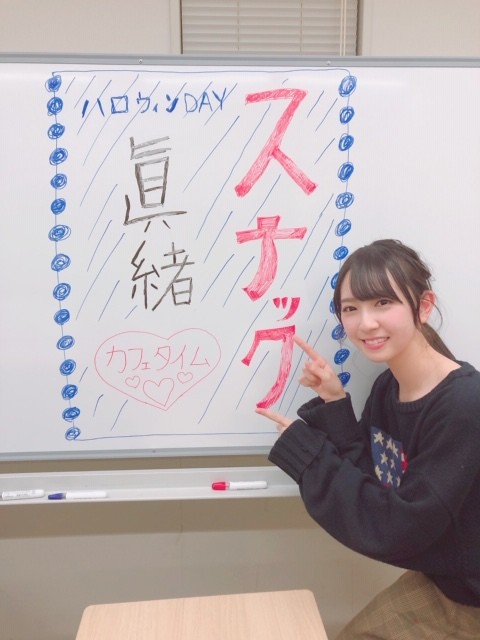 ハロウィンDAY
スナック
眞緒
カフェタイム